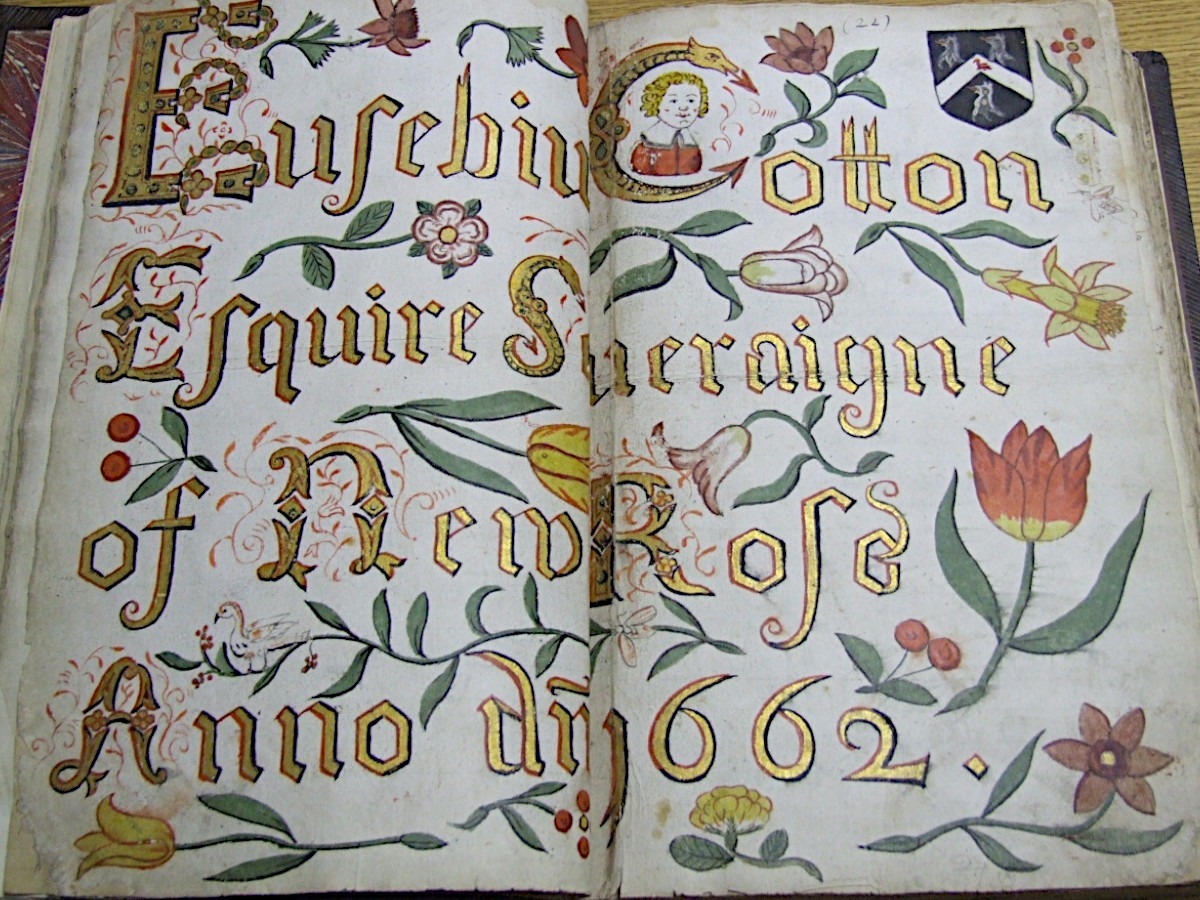 (22)
Euſebius Cotton
Eſquire Soueraigne
of New Roſs
Anno dm̄ 1662.